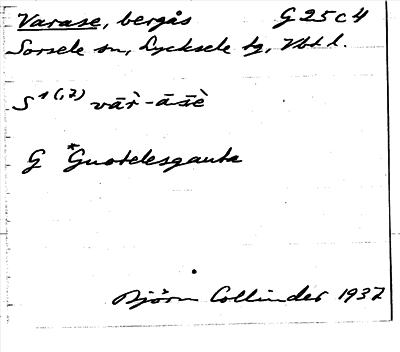 Varase, bergås G 25 c 4
Sorsele sn, Lycksele tg, Vbt l.
S 1(,2) vār̀-āsè
G *Guotelesgauta
Björn Collinder 1937